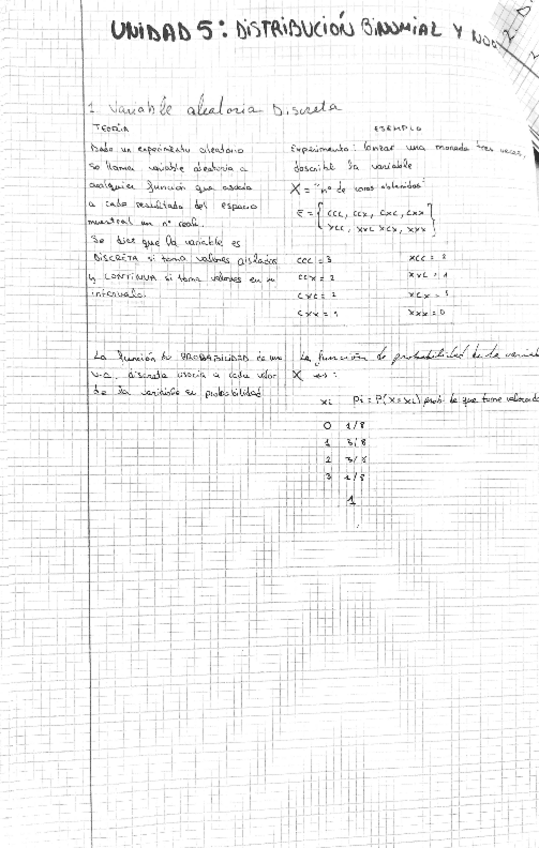 UNIDAD 5: DISTRIBUCIÓN BINOMIAL Y
1 Variable aleatoria Discreta
TEORÍA
Dado un experimento aleatorio
se llama variable aleatoria a
cualquier función que asocia
a cada resultado del espacio
muestral un nº real.
Se dice que la variable es
DISCRETA si toma valores aislados
y CONTINUA si toma valores en un
intervalo.
EJEMPLO
Experimento: lanzar una moneda tres veces,
describe la variable
X = "nº de caras obtenidas"
E = { CCC, CCX, CXC, CXX
XCC, XXC XCX, XXX }
CCC = 3 XCC = 2
CCX = 2 XXC = 1
CXC = 2 XCX = 1
CXX = 1 XXX = 0
La función de PROBABILIDAD de una
v.a. discreta asocia a cada valor
de la variable su probabilidad
La función de probabilidad de la variable
X es:
xi pi = P(X=xi) prob. de que tome valor
0 1/8
1 3/8
2 3/8
3 1/8
1